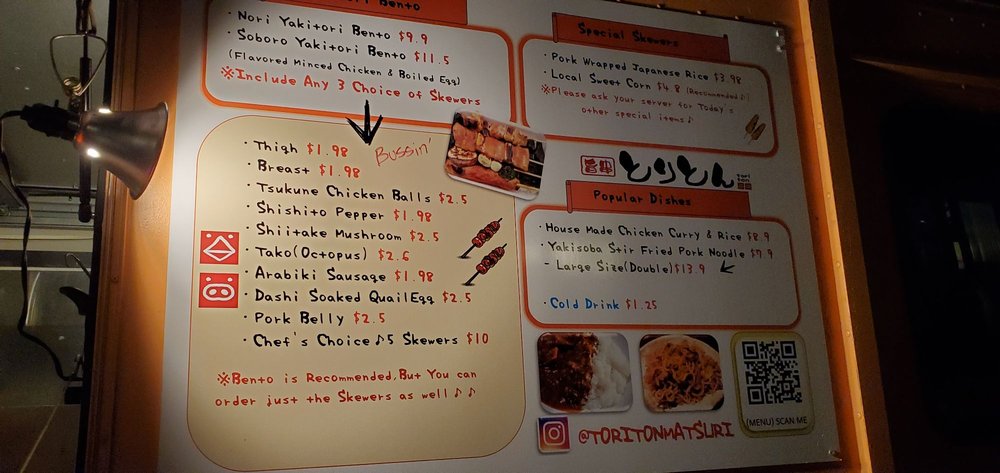 Bento
· Nori Yakitori Bento $9.9
· Soboro Yakitori Bento $11.5
(Flavored Minced Chicken & Boiled Egg)
※Include Any 3 Choice of Skewers
Bussin'
· Thigh $1.98
· Breast $1.98
· Tsukune Chicken Balls $2.5
· Shishito Pepper $1.98
· Shiitake Mushroom $2.5
· Tako(Octopus) $2.6
· Arabiki Sausage $1.98
· Dashi Soaked Quail Egg $2.5
· Pork Belly $2.5
· Chef's Choice♪5 Skewers $10
※Bento is Recommended,But You can
order just the Skewers as well♪♪
Special Skewers
· Pork Wrapped Japanese Rice $3.98
· Local Sweet Corn $4.8 (Recommended♪)
※Please ask your server for Today's
other special items♪
とりとん
Tori
ton
Popular Dishes
· House Made Chicken Curry & Rice $8.9
· Yakisoba Stir Fried Pork Noodle $7.9
- Large Size(Double)$13.9
· Cold Drink $1.25
(MENU) SCAN ME
@TORITONMATSURI